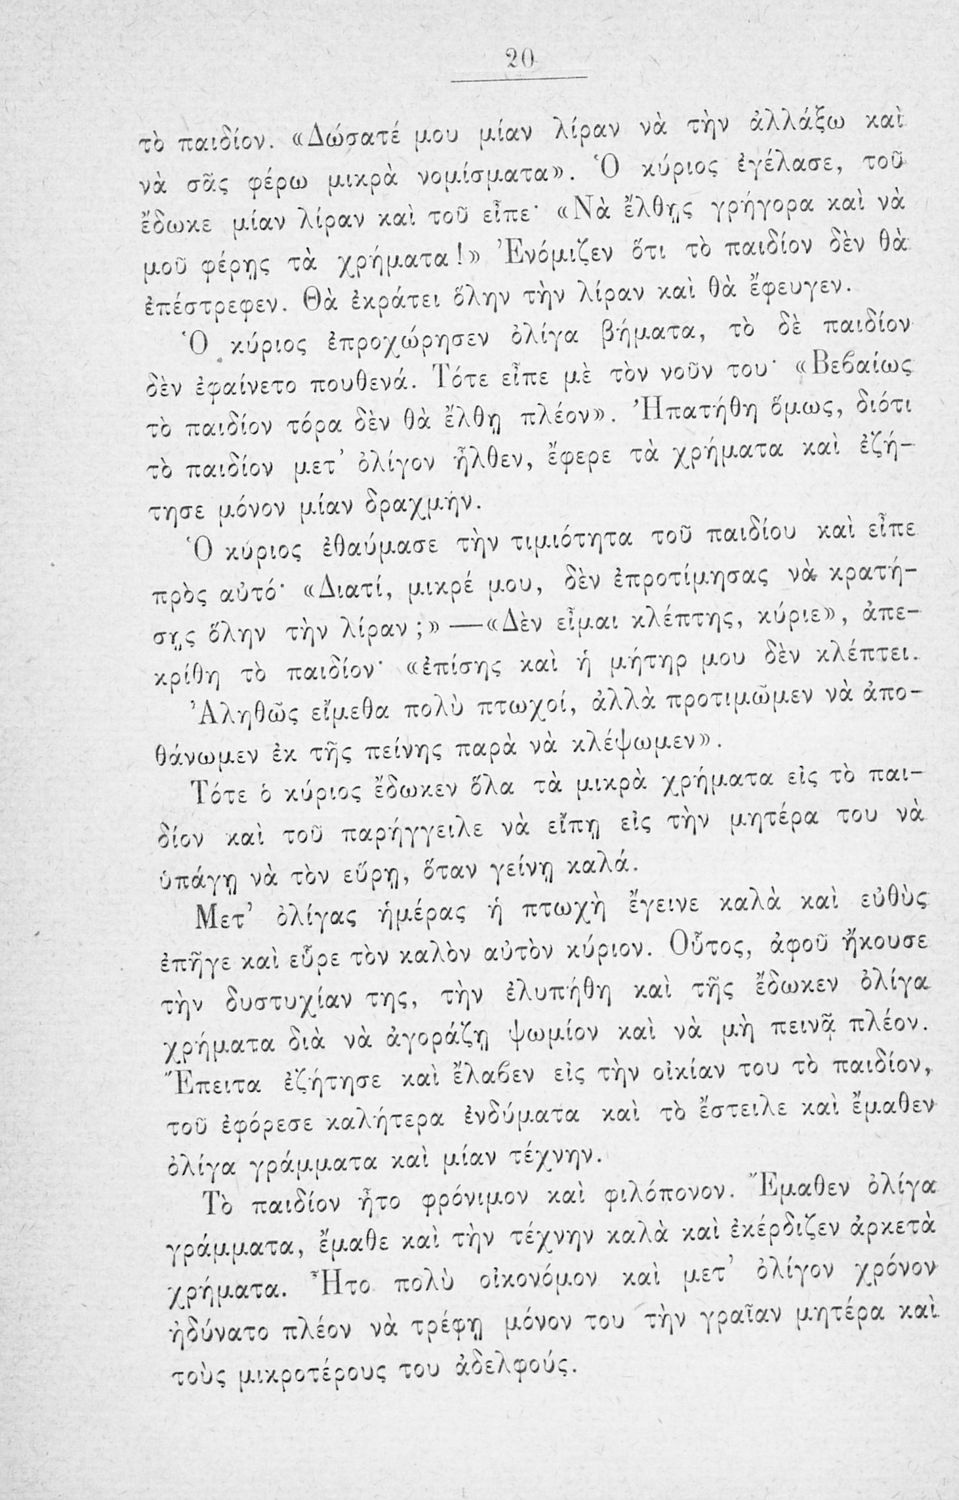 20
τὸ παιδίον. «Δώσατέ μου μίαν λίραν νὰ τὴν ἀλλάξω καὶ
νὰ σᾶς φέρω μικρὰ νομίσματα». Ὁ κύριος ἐγέλασε, τοῦ
ἔδωκε μίαν λίραν καὶ τοῦ εἶπε· «Νὰ ἔλθῃς γρήγορα καὶ νὰ
μοῦ φέρῃς τὰ χρήματα!» Ἐνόμιζεν ὅτι τὸ παιδίον δὲν θὰ
ἐπέστρεφεν. Θὰ ἐκράτει ὅλην τὴν λίραν καὶ θὰ ἔφευγεν.
Ὁ κύριος ἐπροχώρησεν ὀλίγα βήματα, τὸ δὲ παιδίον
δὲν ἐφαίνετο πουθενά. Τότε εἶπε μὲ τὸν νοῦν του· «Βεβαίως
τὸ παιδίον τόρα δὲν θὰ ἔλθῃ πλέον». Ἠπατήθη ὅμως, διότι
τὸ παιδίον μετ' ὀλίγον ἦλθεν, ἔφερε τὰ χρήματα καὶ ἐζή-
τησε μόνον μίαν δραχμήν.
Ὁ κύριος ἐθαύμασε τὴν τιμιότητα τοῦ παιδίου καὶ εἶπε
πρὸς αὐτό· «Διατί, μικρέ μου, δὲν ἐπροτίμησας νὰ κρατή-
σῃς ὅλην τὴν λίραν;» —«Δὲν εἶμαι κλέπτης, κύριε», ἀπε-
κρίθη τὸ παιδίον· «ἐπίσης καὶ ἡ μήτηρ μου δὲν κλέπτει.
Ἀληθῶς εἴμεθα πολὺ πτωχοί, ἀλλὰ προτιμῶμεν νὰ ἀπο-
θάνωμεν ἐκ τῆς πείνης παρὰ νὰ κλέψωμεν».
Τότε ὁ κύριος ἔδωκεν ὅλα τὰ μικρὰ χρήματα εἰς τὸ παι-
δίον καὶ τοῦ παρήγγειλε νὰ εἴπῃ εἰς τὴν μητέρα του νὰ
ὑπάγῃ νὰ τὸν εὕρῃ, ὅταν γείνῃ καλά.
Μετ' ὀλίγας ἡμέρας ἡ πτωχὴ ἔγεινε καλὰ καὶ εὐθὺς
ἐπῆγε καὶ εὗρε τὸν καλὸν αὐτὸν κύριον. Οὗτος, ἀφοῦ ἤκουσε
τὴν δυστυχίαν της, τὴν ἐλυπήθη καὶ τῆς ἔδωκεν ὀλίγα
χρήματα διὰ νὰ ἀγοράζῃ ψωμίον καὶ νὰ μὴ πεινᾷ πλέον.
Ἔπειτα ἐζήτησε καὶ ἔλαβεν εἰς τὴν οἰκίαν του τὸ παιδίον,
τοῦ ἐφόρεσε καλήτερα ἐνδύματα καὶ τὸ ἔστειλε καὶ ἔμαθεν
ὀλίγα γράμματα καὶ μίαν τέχνην.
Τὸ παιδίον ἦτο φρόνιμον καὶ φιλόπονον. Ἔμαθεν ὀλίγα
γράμματα, ἔμαθε καὶ τὴν τέχνην καλὰ καὶ ἐκέρδιζεν ἀρκετὰ
χρήματα. Ἦτο πολὺ οἰκονόμον καὶ μετ' ὀλίγον χρόνον
ἠδύνατο πλέον νὰ τρέφῃ μόνον του τὴν γραῖαν μητέρα καὶ
τοὺς μικροτέρους του ἀδελφούς.